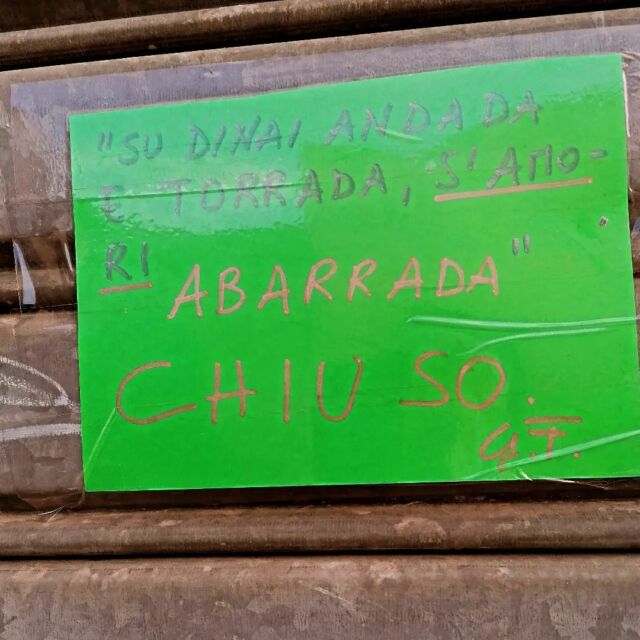 "SU DINAI ANDADA
E TORRADA, S'AMO-
RI ABARRADA"
CHIUSO.
G.T.